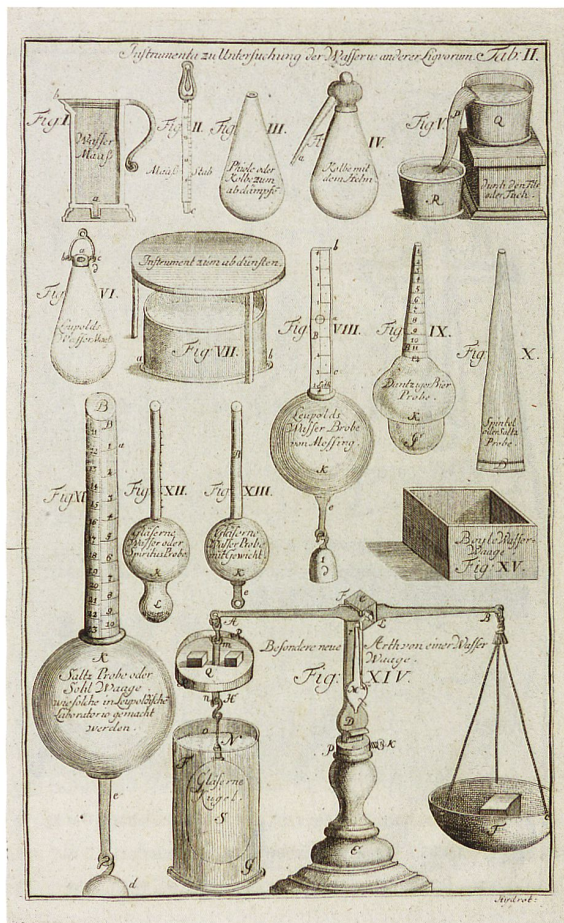 Instrumenta zu Untersuchung der Wasser u: anderer Liqvorum. Tab: II.
Fig I.
Wasser
Maaß
Fig II.
Maaß Stab
Fig III.
Phiole oder
Kolbe zum
abdämpffē
Fig IV.
Kolbe mit
dem Helm
Fig V.
durch den Filz
oder Tuch.
Fig VI.
Leupolds
Wasser Maaß
Instrument zum abdünsten.
Fig: VII.
Fig VIII.
Leupolds
Wasser Probe
von Messing
Fig IX.
Dantziger Bier
Probe.
Fig: X.
Spindel
oder Saltz
Probe.
Fig XI
Saltz Probe oder
Sohl Waage
wie solche in Leupoldischē
Laboratorio gemacht
werden.
Fig XII.
Gläserne
Wasser oder
Spiritus Probe
Fig XIII.
Gläserne
Wasser Probe
mit Gewicht
Boyle Wasser-
Waage
Fig: XV.
Besondere neue Arth von einer Wasser
Waage.
Fig: XIV.
Gläserne
Kugel.
Hydrot: